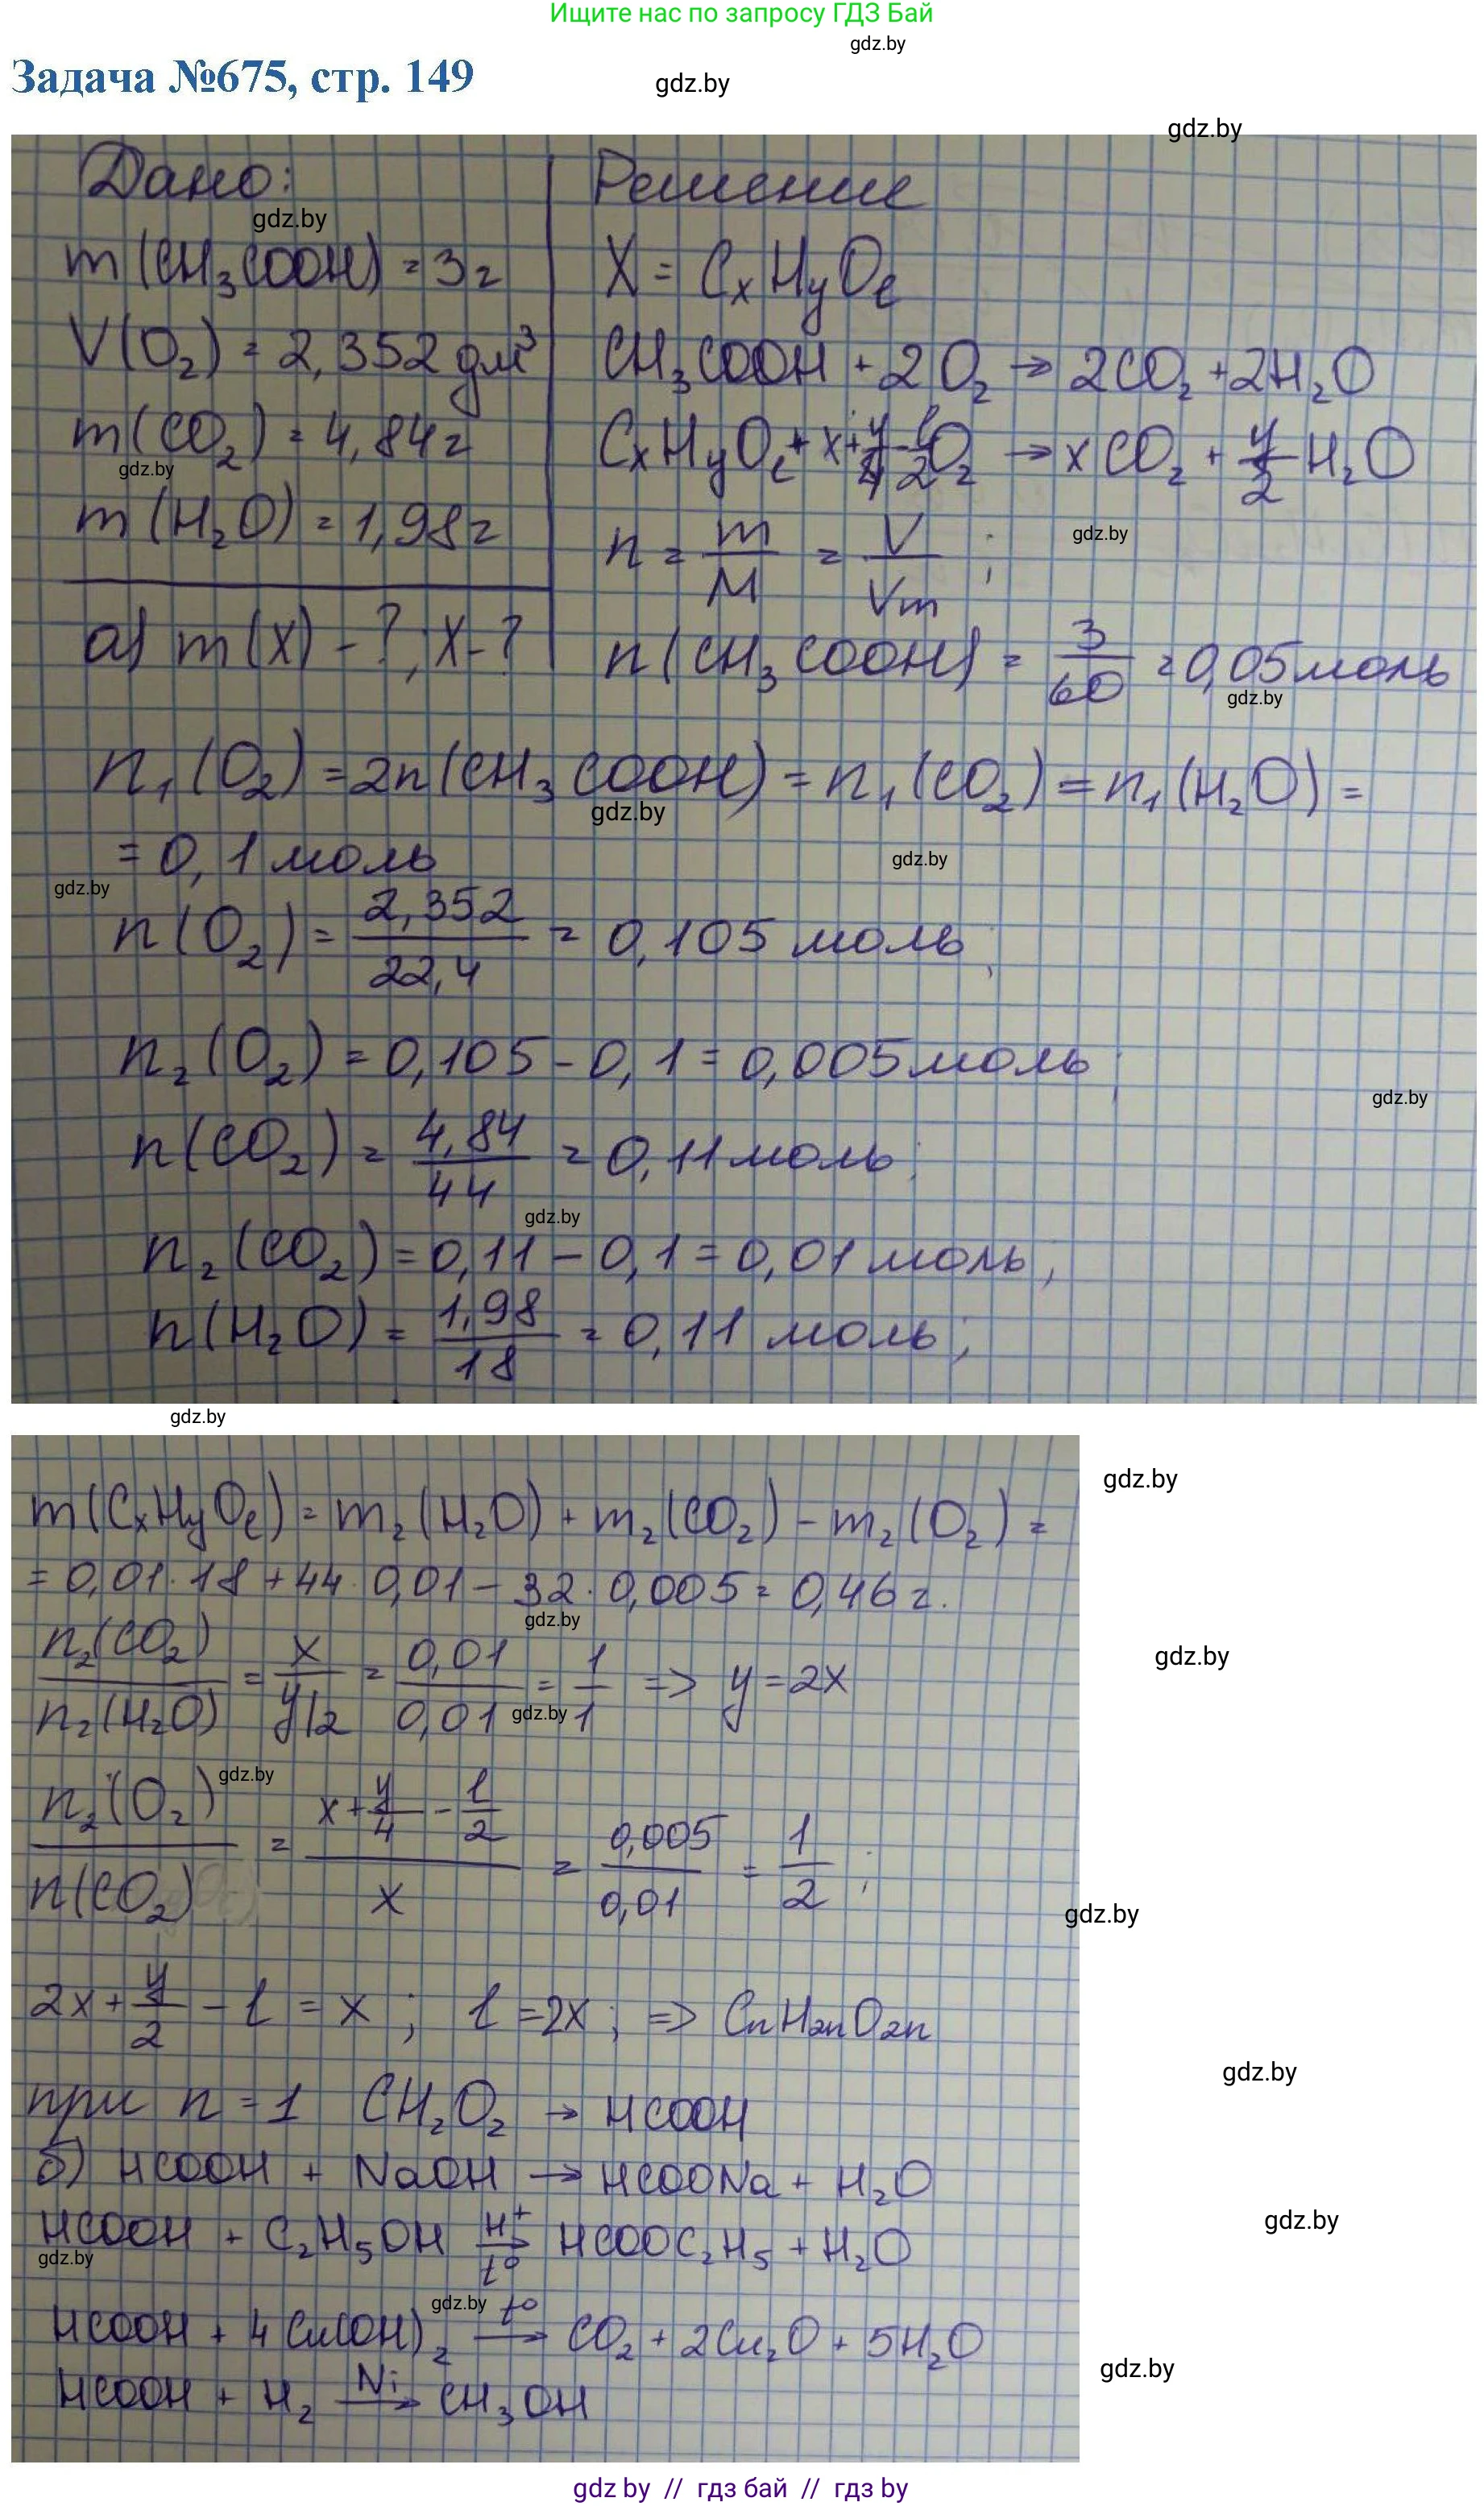 Ищите нас по запросу ГДЗ Бай
gdz.by
Задача №675, стр. 149
gdz.by
gdz.by
Дано:
Решение
gdz.by
m(CH₃COOH) = 3г
X = CₓHᵧOₗ
V(O₂) = 2,352 дм³
CH₃COOH + 2O₂ → 2CO₂ + 2H₂O
m(CO₂) = 4,84г
CₓHᵧOₗ + x + y/4 - l/2 O₂ → xCO₂ + y/2 H₂O
gdz.by
m(H₂O) = 1,98г
n = m/M = V/Vm ;
gdz.by
а) m(X) - ?, X - ?
n(CH₃COOH) = 3/60 = 0,05моль
gdz.by
n₁(O₂) = 2n(CH₃COOH) = n₁(CO₂) = n₁(H₂O) =
gdz.by
= 0,1 моль
gdz.by
gdz.by
n(O₂) = 2,352/22,4 = 0,105 моль;
n₂(O₂) = 0,105 - 0,1 = 0,005моль;
gdz.by
n(CO₂) = 4,84/44 = 0,11моль;
gdz.by
n₂(CO₂) = 0,11 - 0,1 = 0,01 моль;
n(H₂O) = 1,98/18 = 0,11 моль;
gdz.by
gdz.by
m(CₓHᵧOₗ) = m₂(H₂O) + m₂(CO₂) - m₂(O₂) =
= 0,01·18 + 44·0,01 - 32·0,005 = 0,46г.
gdz.by
gdz.by
n₂(CO₂)/n₂(H₂O) = x/y/2 = 0,01/0,01 = 1/1 => y = 2x
gdz.by
gdz.by
n₂(O₂)/n(CO₂) = x + y/4 - l/2 / x = 0,005/0,01 = 1/2 ;
gdz.by
2x + y/2 - l = x ; l = 2x ; => CnH2nO2n
gdz.by
при n = 1 CH₂O₂ → HCOOH
б) HCOOH + NaOH → HCOONa + H₂O
gdz.by
HCOOH + C₂H₅OH H⁺ → t° HCOOC₂H₅ + H₂O
gdz.by
gdz.by
HCOOH + 4Cu(OH)₂ t° → CO₂ + 2Cu₂O + 5H₂O
gdz.by
HCOOH + H₂ Ni → CH₃OH
gdz by // гдз бай // гдз by